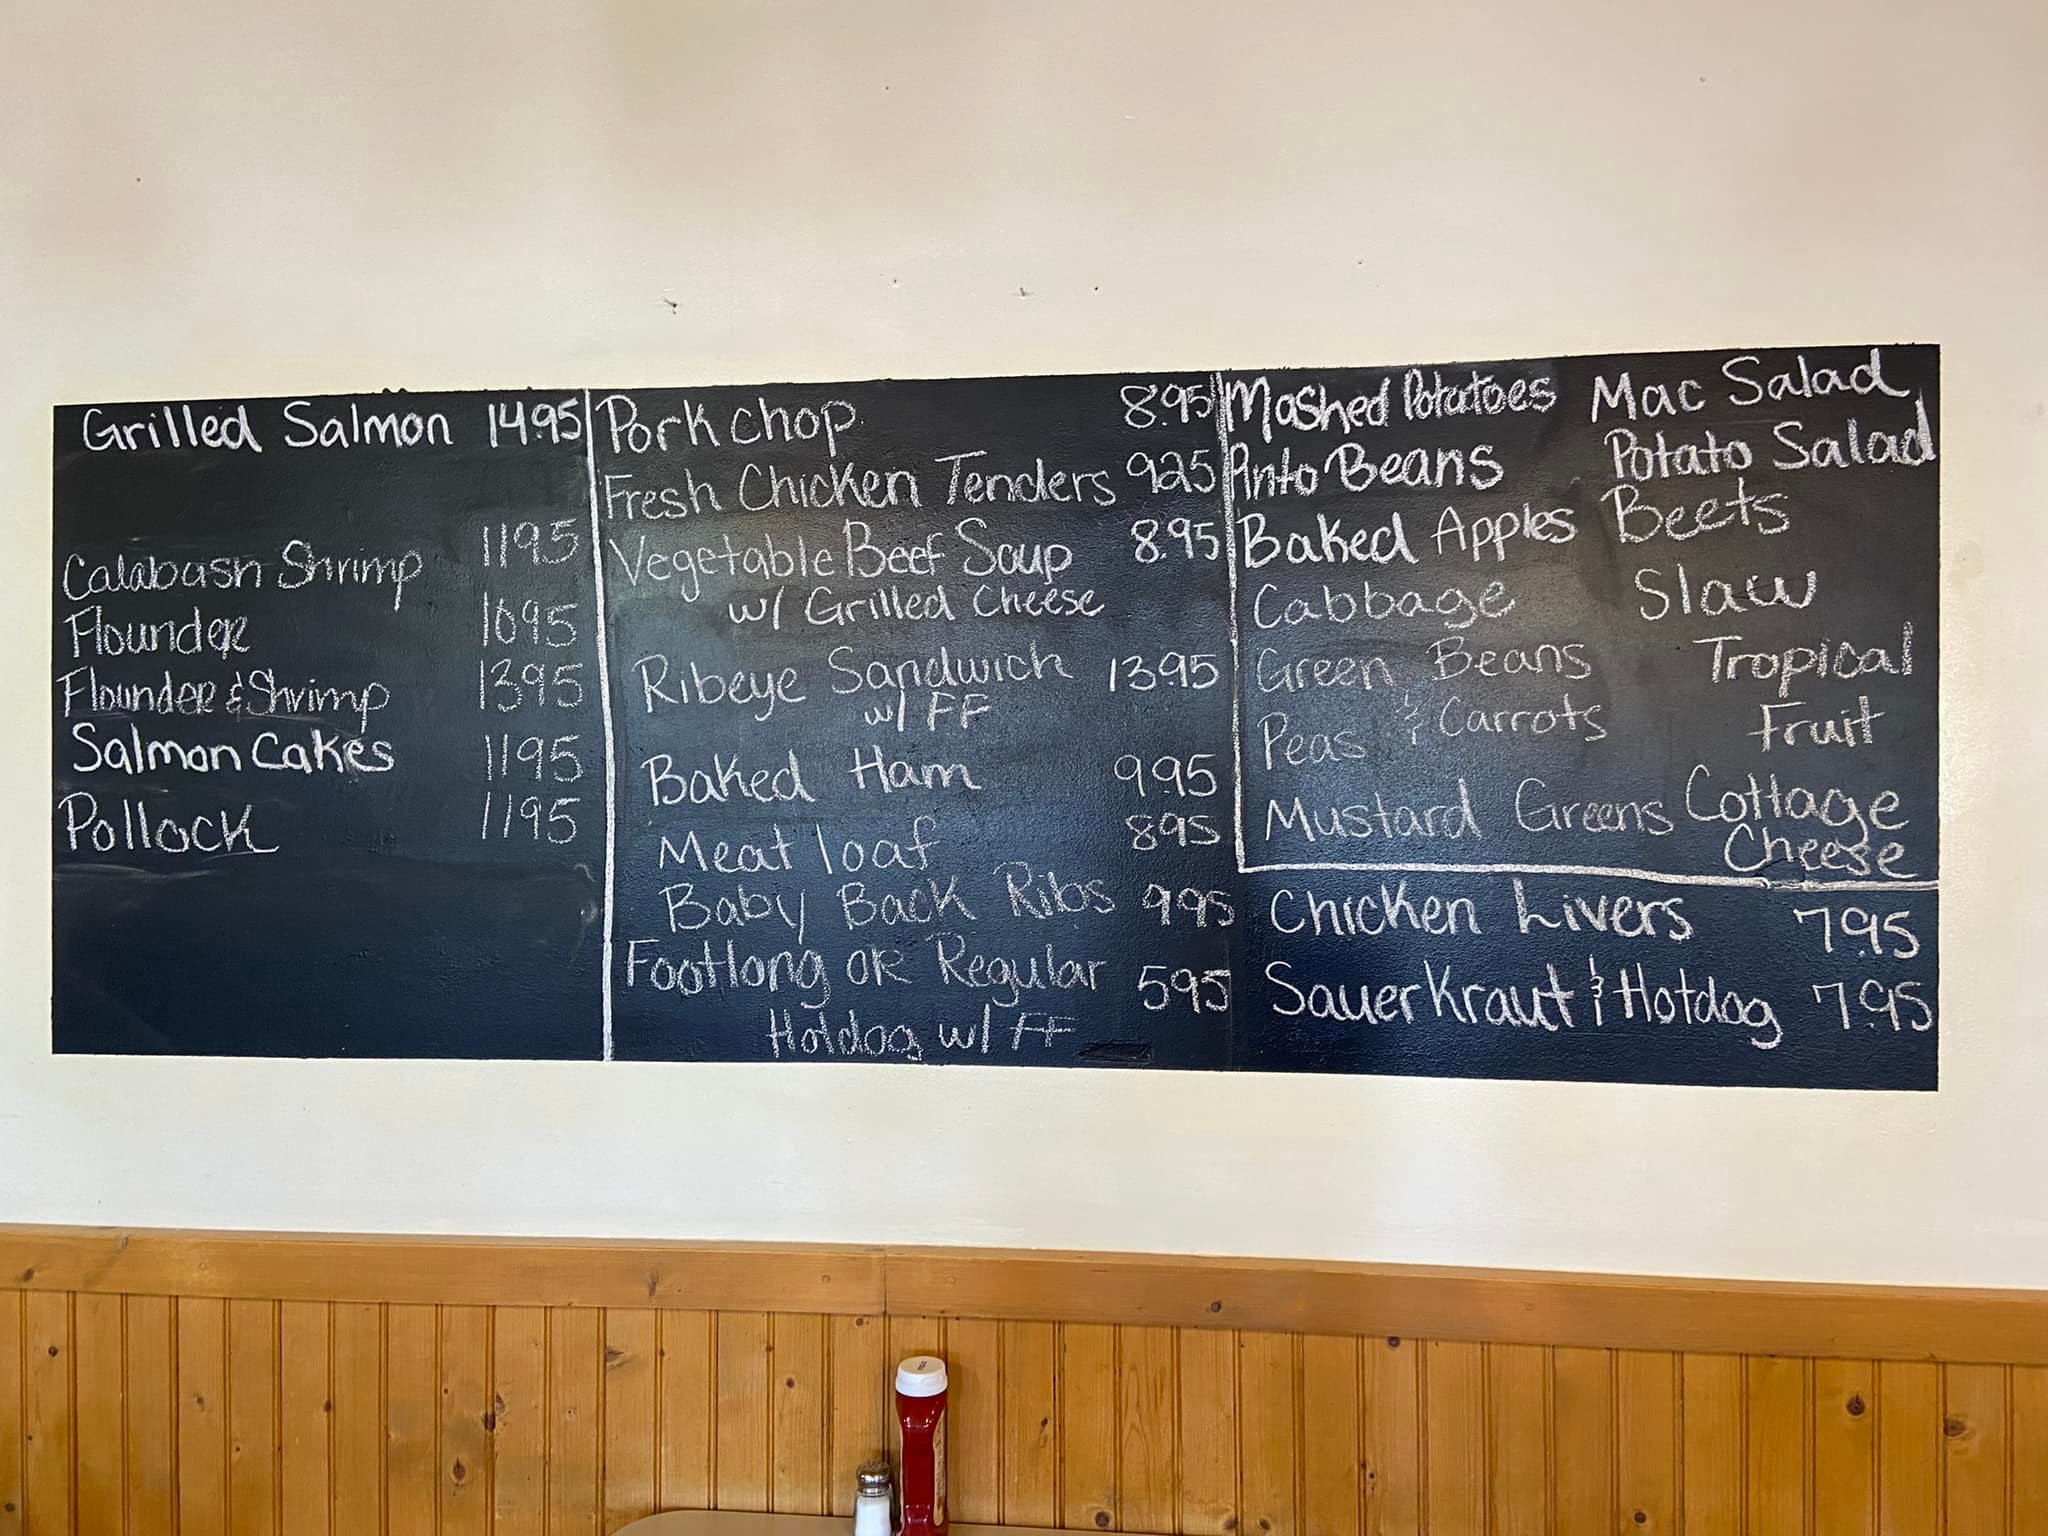 Grilled Salmon 14.95
Calabash Shrimp 1195
Flounder 1095
Flounder & Shrimp 1395
Salmon Cakes 1195
Pollock 1195
Pork chop 8.95
Fresh Chicken Tenders 925
Vegetable Beef Soup 8.95
w/ Grilled Cheese
Ribeye Sandwich 13.95
w/ FF
Baked Ham 9.95
Meat loaf 895
Baby Back Ribs 995
Footlong or Regular 595
Hotdog w/ FF
Mashed Potatoes
Pinto Beans
Baked Apples
Cabbage
Green Beans
Peas & Carrots
Mustard Greens
Mac Salad
Potato Salad
Beets
Slaw
Tropical
Fruit
Cottage
Cheese
Chicken Livers 7.95
SauerKraut & Hotdog 7.95